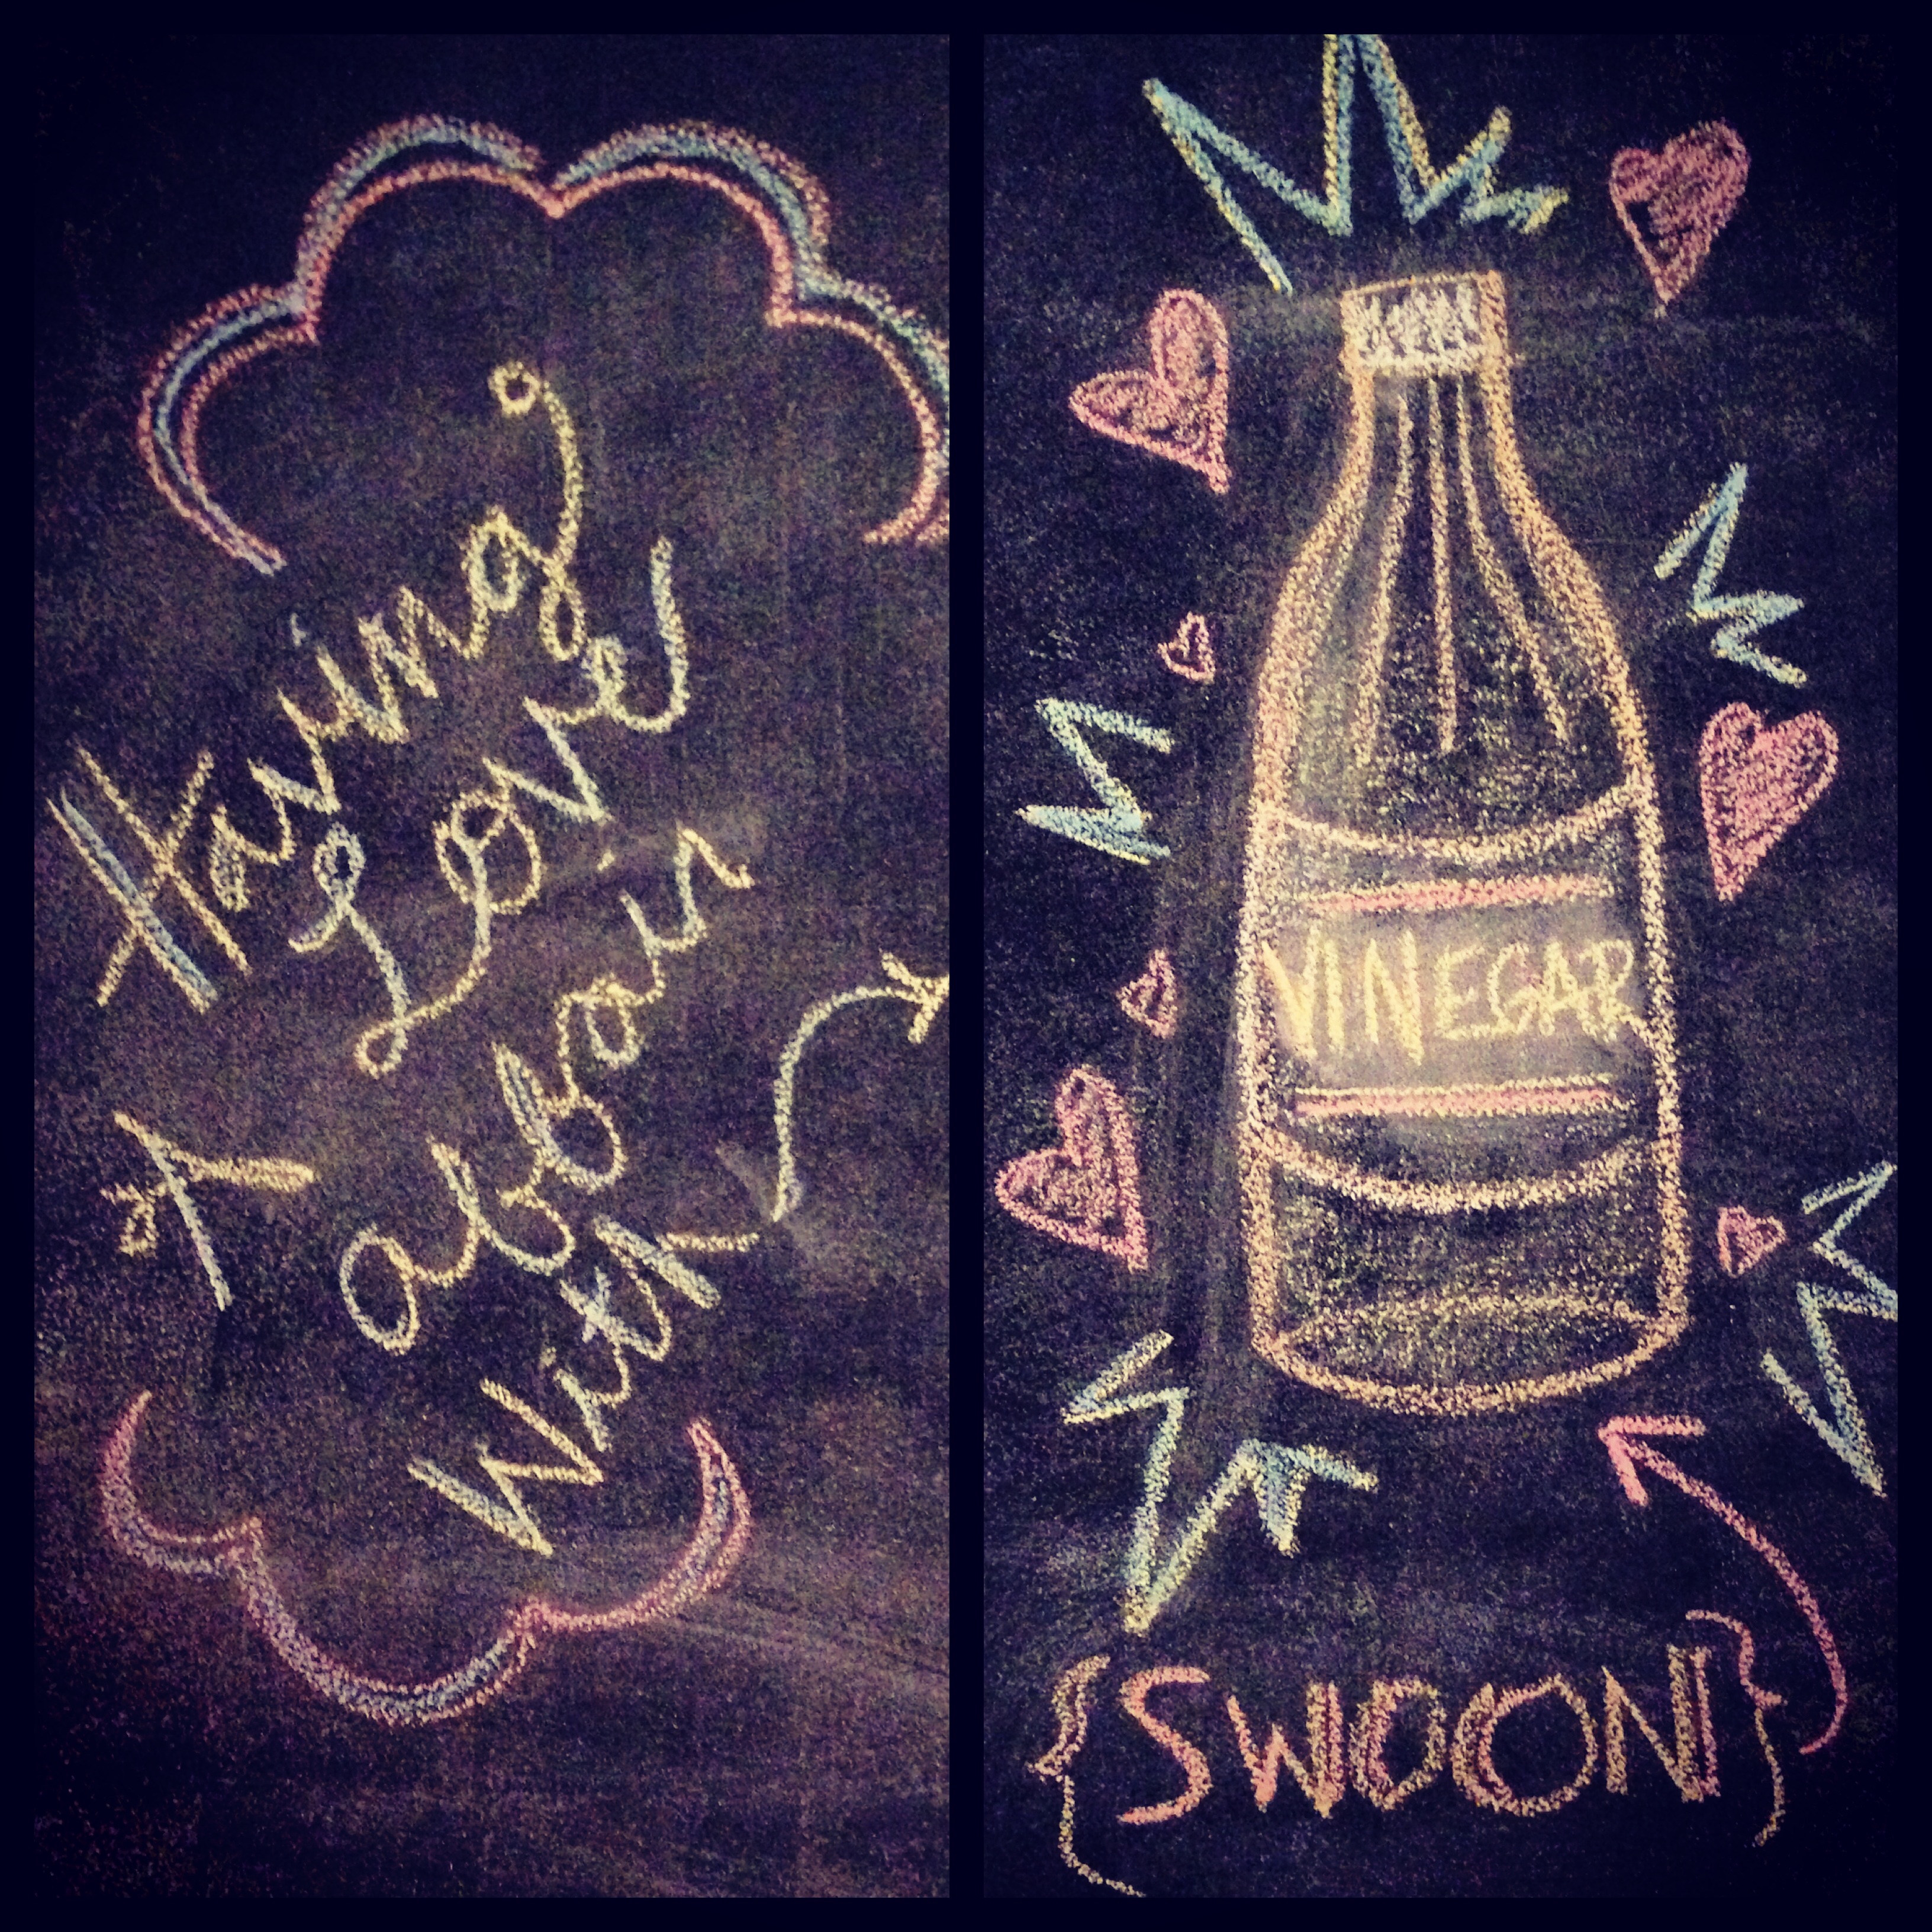 Having
a Love
affair
With
VINEGAR
{SWOON}